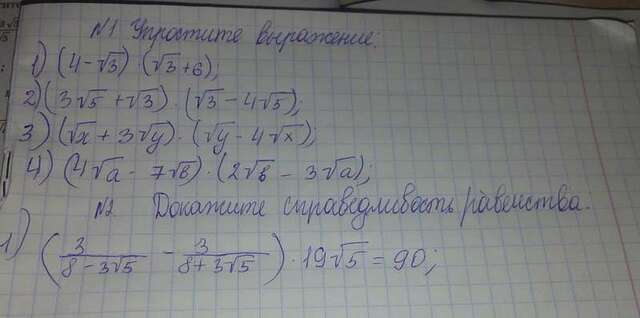 N1 Упростите выражение:
1) (4-√3) (√3+6);
2) (3√5+√3)·(√3-4√5);
3) (√x+3√y)·(√y-4√x);
4) (4√a-7√в)·(2√в-3√a);
N2. Докажите справедливость равенства.
1) (3/(8-3√5) - 3/(8+3√5))·19√5=90;